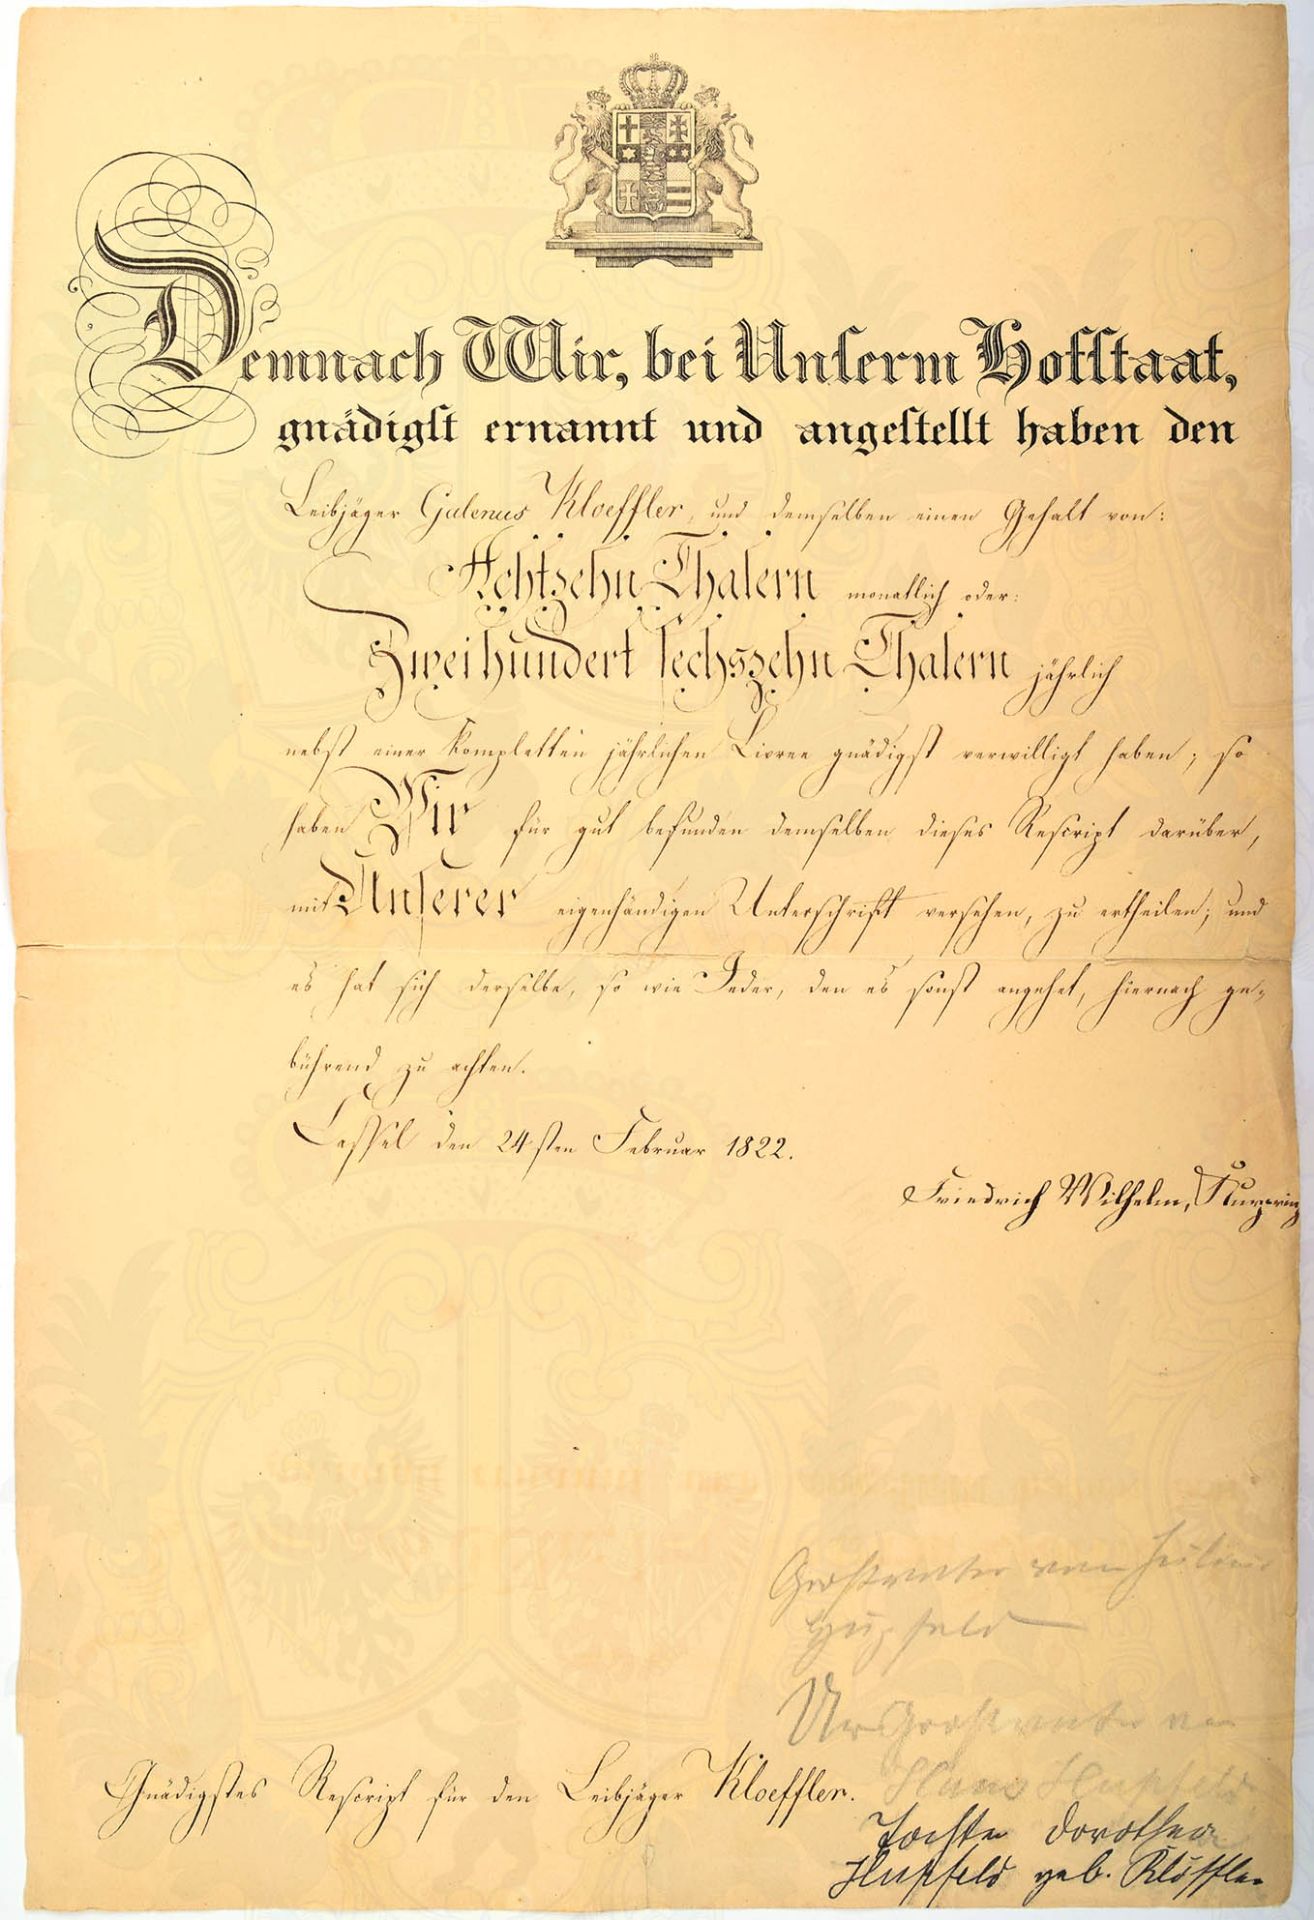 Demnach Wir, bei Unserm Hofstaat,
gnädigst ernannt und angestellt haben den
Leibjäger Galenus Kloeffler, und demselben einen Gehalt von:
Achtzehn Thalern monatlich oder:
Zweihundert sechszehn Thalern jährlich
nebst einer kompletten jährlichen Livree gnädigst verwilligt haben; so
haben Wir für gut befunden demselben dieses Rescript darüber,
mit Unserer eigenhändigen Unterschrift versehen, zu ertheilen; und
es hat sich derselbe, so wie Jeder, den es sonst angehet, hiernach ge-
bührend zu achten.
Cassel den 24sten Februar 1822.
Friedrich Wilhelm, Kurprinz
Großvater von
Hupfeld
Ur Großvater von
Hans Hupfeld
Gnädigstes Rescript für den Leibjäger Kloeffler.
Tochter Dorothea
Hupfeld geb. Klöffler